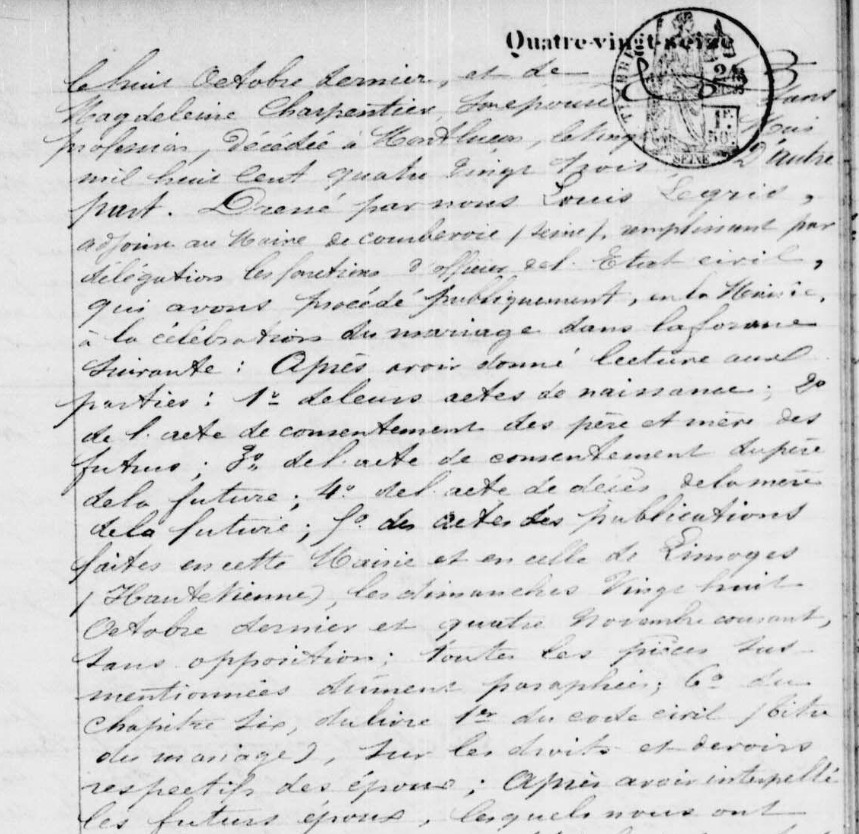 Quatre-vingt-seize
le huit Octobre dernier, et de
Magdeleine Charpentier, son épouse sans
profession, décédée à Montluçon, le Mai
mil huit cent quatre vingt trois D'autre
part. Dressé par nous Louis Legris,
adjoint au Maire de Courbevoie (Seine), remplissant par
délégation les fonctions d'officier de l'Etat civil,
qui avons procédé publiquement, en la Mairie,
à la célébration du mariage dans la forme
suivante : Après avoir donné lecture aux
parties : 1º de leurs actes de naissance ; 2º
de l'acte de consentement des père et mère des
futurs ; 3º de l'acte de consentement du père
de la future ; 4º de l'acte de décès de la mère
de la future ; 5º des actes des publications
faites en cette Mairie et en celle de Limoges
(Haute Vienne), les dimanches Vingt huit
Octobre dernier et quatre Novembre courant,
sans opposition ; toutes les pièces sus
mentionnées dûment paraphées ; 6º du
Chapitre six, du livre 1er du code civil (titre
du mariage), sur les droits et devoirs
respectifs des époux ; Après avoir interpellé
les futurs époux, lesquels nous ont
TIMBRE
24
1F
50c
SEINE